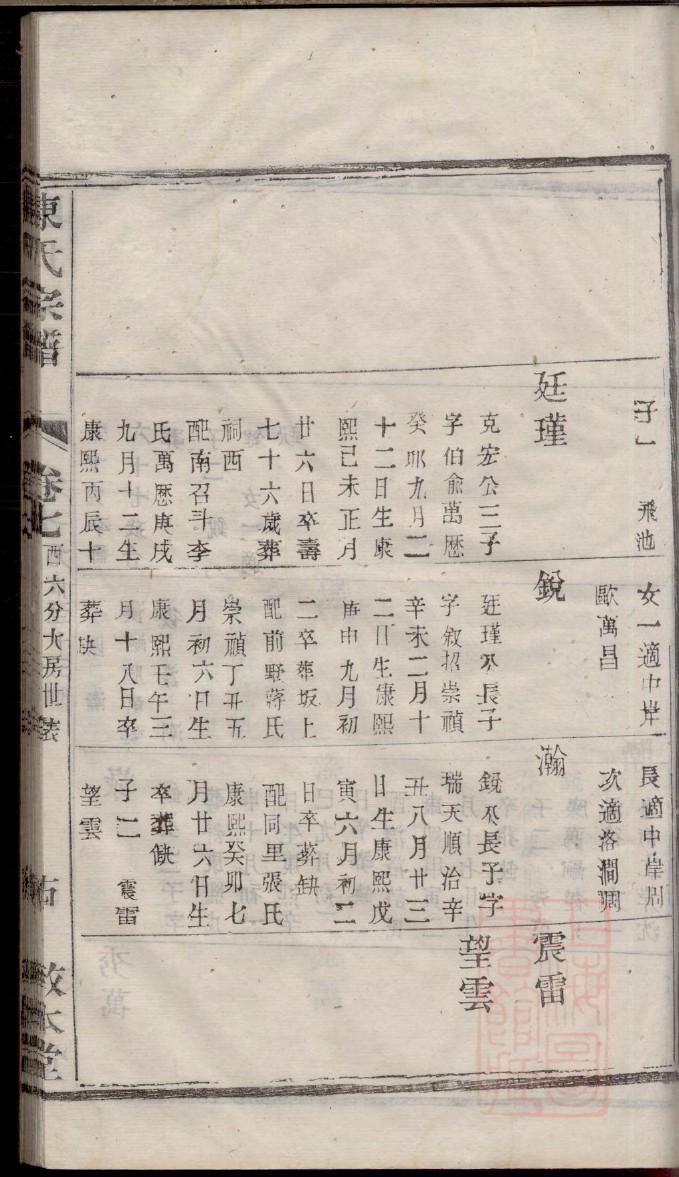 子一 飛池
廷瑾
克宏公三子
字伯俞萬歷
癸卯九月二
十二日生康
熙己未正月
廿六日卒壽
七十六歲葬
祠西
配南召斗李
氏萬歷庚戌
九月十二生
康熙丙辰十
女一適中岸
歐萬昌
銳
廷瑾公長子
字叙招崇禎
辛未二月十
二日生康熙
庚申九月初
二卒葬坂上
配前墅蔣氏
崇禎丁丑五
月初六日生
康熙壬午三
月十八日卒
葬缺
長適中岸別
次適洛澗周
瀚
銳公長子字
瑞天順治辛
丑八月廿三
日生康熙戊
寅六月初二
日卒葬缺
配同里張氏
康熙癸卯七
月廿六日生
卒葬缺
子二 震雷
望雲
震雷
望雲
陳氏宗譜 卷七 西六分大房世 敦本堂